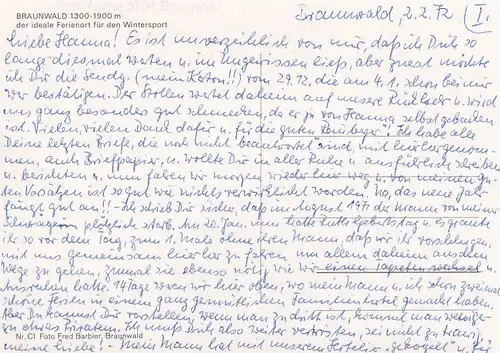 BRAUNWALD 1300-1900 m
der ideale Ferienort für den Wintersport
Braunwald, 2.2.72 (I.
Liebe Hanna! Es ist unverzeihlich von mir, daß ich Dich so
lange diesmal warten u. im Ungewissen ließ, aber zuerst möchte
ich Dir die Sendg. (mein Karton!!) vom 29.12, die am 4.1. schon bei mir
war bestätigen. Der Stollen wartet daheim auf unsere Rückkehr u. wird
uns ganz besonders gut schmecken, da er ja von Hanna selbst gebacken
ist. Vielen, vielen Dank dafür u. für die guten Ich habe alle
Deine letzten Briefe, die noch nicht beantwortet sind, mit hierhergenom-
men, auch Briefpapier, u. wollte Dir in aller Ruhe u. ausführlich schreiben
u. berichten u. nun fahren wir morgen wieder hier weg u. von meinen gu-
ten Vorsätzen ist so gut wie nichts verwirklicht worden! Na, das neue Jahr
fängt gut an!! - Ich schrieb Dir sicher, daß im August 1971 der Mann von meiner
Schwägerin plötzlich starb. Am 20. Jan. nun hatte Ruth Geburtstag u. es graute
ihr so vor dem Tag, zum 1. Male ohne ihren Mann, daß wir ihr vorschlugen,
mit uns gemeinsam hierher zu fahren, um allem daheim aus dem
Wege zu gehen, zumal sie ebenso nötig wie wir einen Tapetenwechsel u.
Ausruhen hatte. 14 Tage waren wir hier oben, wo mein Mann u. ich schon zweimal
schöne Ferien in einem ganz gemütlichen Familienhotel gemacht haben.
Aber Du kannst Dir vorstellen, wenn man zu dritt ist, kommt man weniger
zu etwas Privatem. Ich muß Dich also weiter vertrösten, sei nicht zu traurig,
meine Liebe! - Mein Mann hat mit unserem Hotelier „gekegelt" u. für
Nr. C1 Foto Fred Barbier, Braunwald